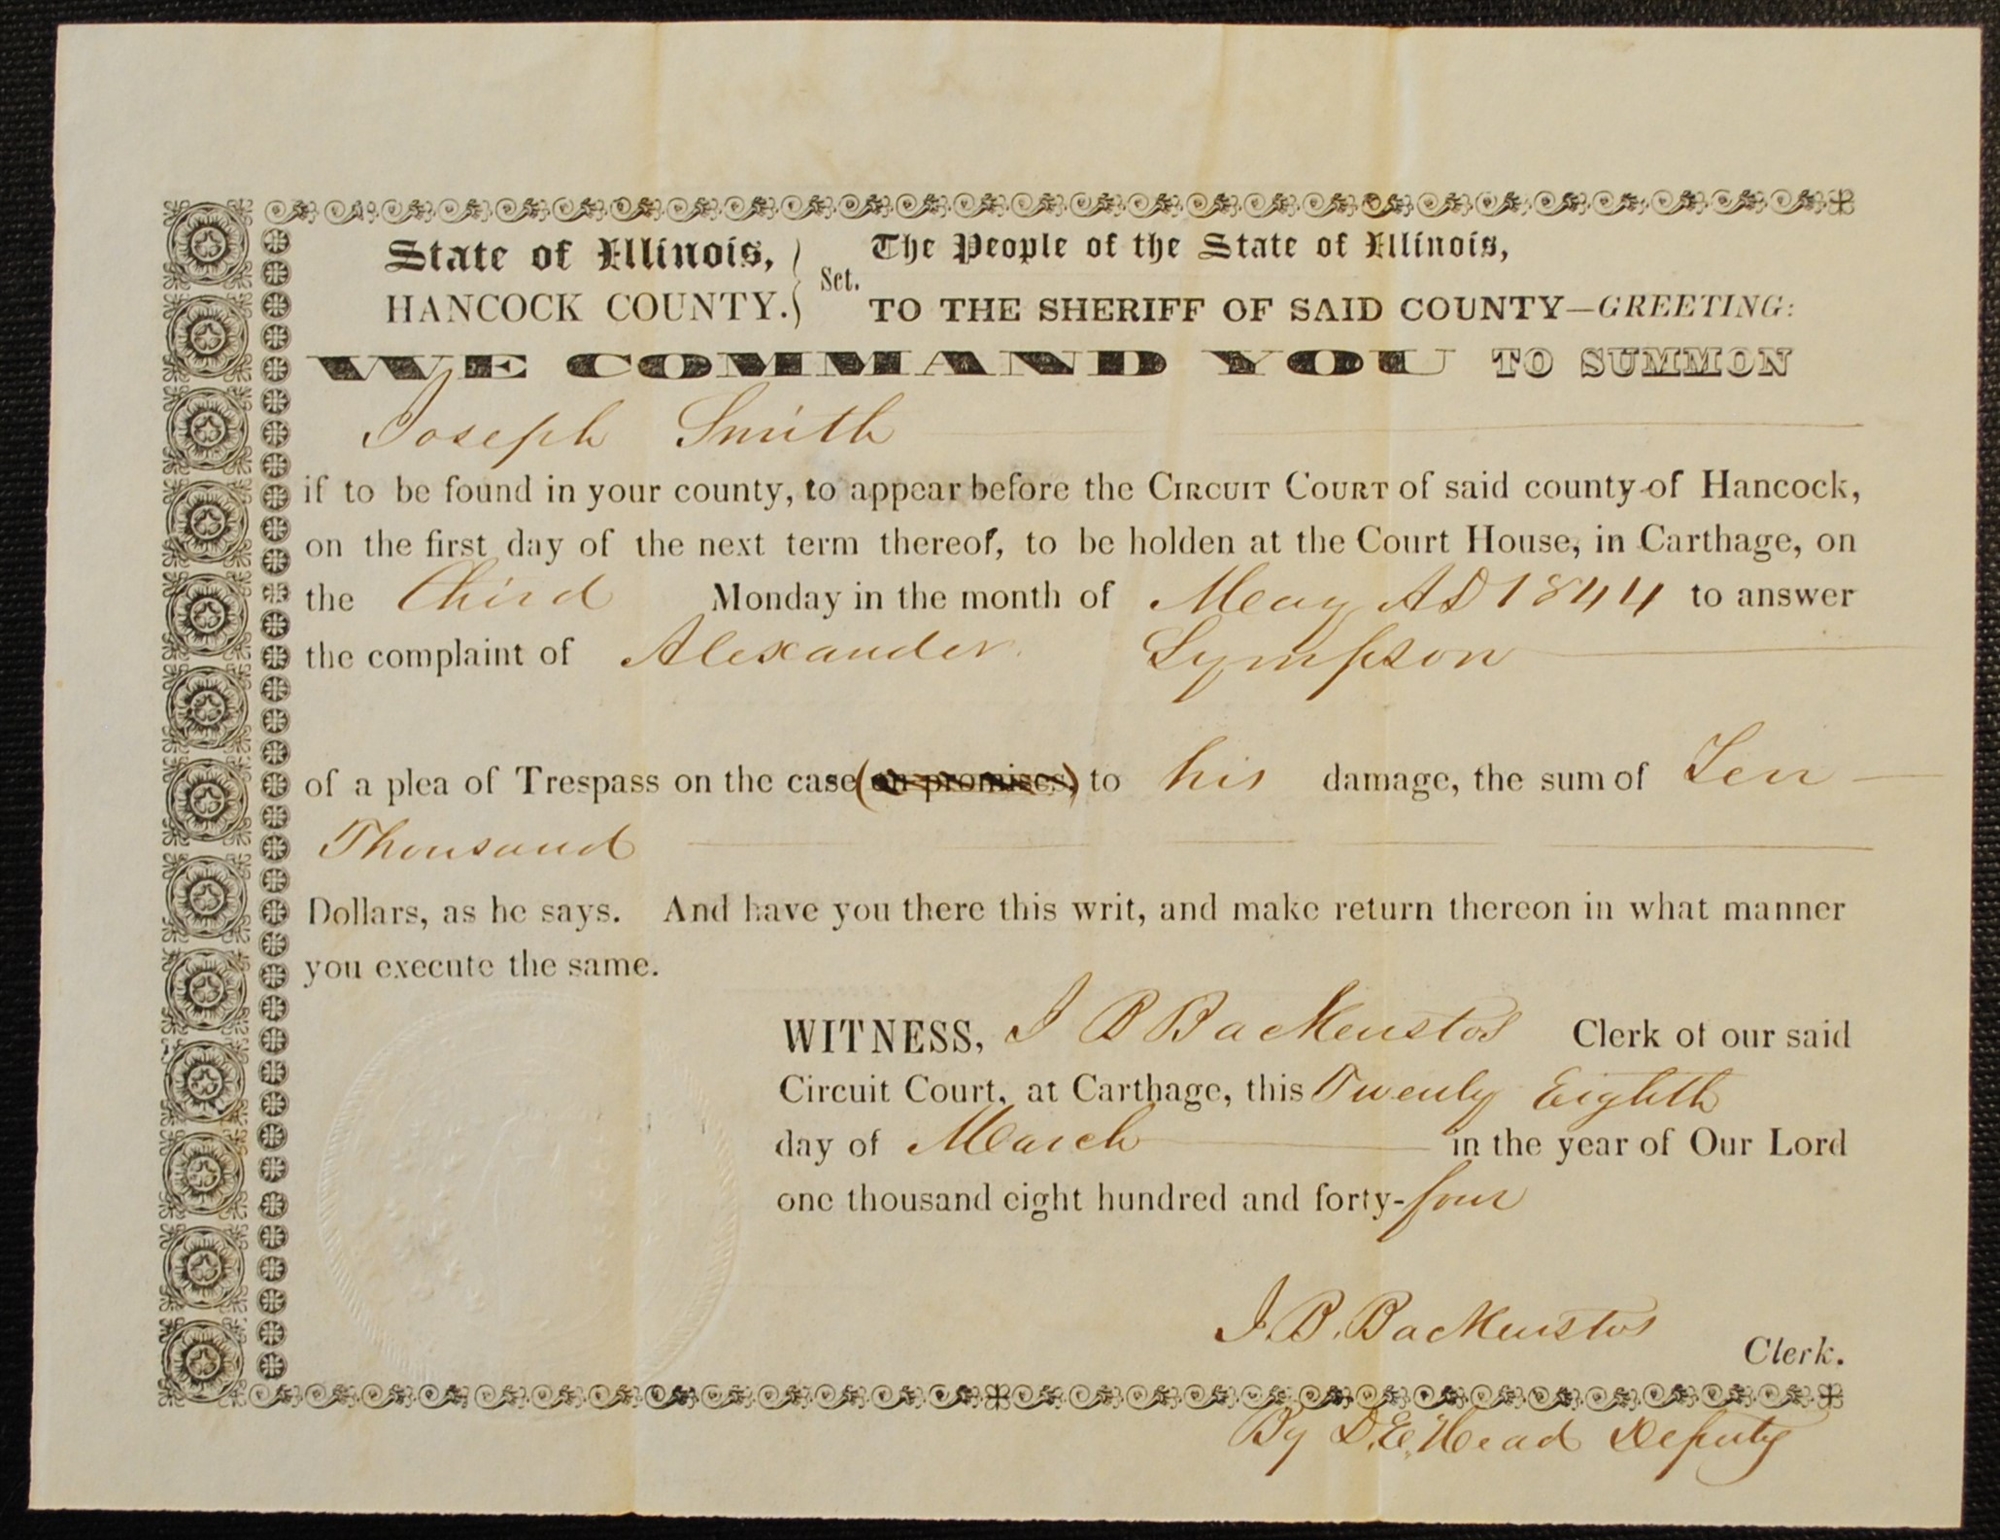 State of Illinois, } Sct. The People of the State of Illinois,
HANCOCK COUNTY. TO THE SHERIFF OF SAID COUNTY—GREETING:
WE COMMAND YOU TO SUMMON
Joseph Smith
if to be found in your county, to appear before the CIRCUIT COURT of said county of Hancock,
on the first day of the next term thereof, to be holden at the Court House, in Carthage, on
the third Monday in the month of May AD 1844 to answer
the complaint of Alexander Sympson
of a plea of Trespass on the case (on promises) to his damage, the sum of Ten
Thousand
Dollars, as he says. And have you there this writ, and make return thereon in what manner
you execute the same.
WITNESS, J B Backenstos Clerk of our said
Circuit Court, at Carthage, this Twenty Eighth
day of March in the year of Our Lord
one thousand eight hundred and forty-four
J. B. Backenstos Clerk.
By D. E. Head Deputy